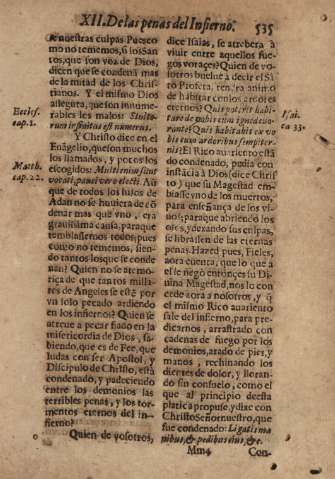 XII. De las penas del Infierno. 535
de nuestras culpas. Pues co
mo no tememos, si los San
tos, que son voz de Dios,
dicen que se condena mas
de la mitad de los Chris-
tianos. Y el mismo Dios
assegura, que son innume-
rables los malos: Stulto-
rum infinitus est numerus.
Eccles.
cap. 1.
Y Christo dice en el
Euãgelio, que son muchos
los llamados, y pocos los
escogidos: Multi enim sunt
vocati, pauci vero electi. Aũ
Matth.
cap. 22.
que de todos los hijos de
Adan no se huviera de cõ
denar mas que vno, era
grauissima causa, para que
temblassemos todos; pues
como no tememos, sien-
do tantos los que se conde
nan? Quien no se atemo-
riça de que tantos milla-
res de Angeles se estè por
vn solo pecado ardiendo
en los infiernos? Quien se
atreue a pecar fiado en la
misericordia de Dios, sa-
biendo, que es de Fee, que
Iudas con ser Apostol, y
Discipulo de Christo, està
condenado, y padeciendo
entre los demonios las
terribles penas, y los tor-
mentos eternos del in-
fierno?
Quien de vosotros,
dice Isaias, se atreberà à
viuir entre aquellos fue-
gos voraçes? Quien de vo-
sotros buelue à decir el Sã
to Profeta, tendrà animo
de habitar con los ardores
eternos? Quis poterit habi-
tare de vobis cum igne devo-
rante? Quis habitabit ex vo
bis cum ardoribus sempiter-
nis?
Isai.
ca. 33.
El Rico auariento està
do condenado, pudia con
instãcia à Dios (dice Chris
to) que su Magestad em-
biasse vno de los muertos,
para enseñança de los vi-
uos; para que abriendo los
ojos, y dexando sus culpas,
se librassen de las eternas
penas. Hazed pues, Fieles,
aora cuenta, que lo que à
el se negò entonces su Di-
uina Magestad, nos lo con
cede aora a nosotros, y q̃
el mismo Rico auariento
sale del infierno, para pre-
dicarnos, arrastrado con
cadenas de fuego por los
demonios, atado de pies, y
manos, rechinando los
dientes de dolor, y lloran-
do sin consuelo, como el
que al principio desta
platica propuse, y dixe con
Christo Señor nuestro, que
fue condenado: Ligatis ma
nibus, & pedibus eius, &c.
Mm4 Con-